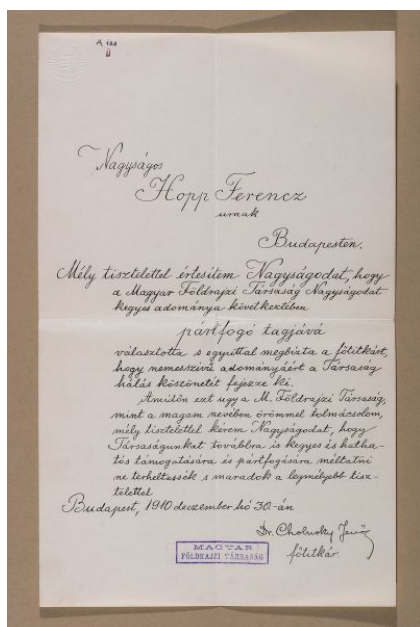 A 122
Nagyságos
Hopp Ferencz
urnak
Budapesten.
Mély tisztelettel értesítem Nagyságodat, hogy
a Magyar Földrajzi Társaság Nagyságodat
kegyes adománya következtében
pártfogó tagjává
választotta s egyuttal megbízta a főtitkárt,
hogy nemesszivű adományáért a Társaság
hálás köszönetét fejezze ki.
Amidőn ezt ugy a M. Földrajzi Társaság,
mint a magam nevében örömmel tolmácsolom,
mély tisztelettel kérem Nagyságodat, hogy
Társaságunkat továbbra is kegyes és hatha-
tós támogatására és pártfogására méltatni
ne terheltessék s maradok a legmélyebb tisz-
telettel
Budapest, 1910 deczember hó 30.-án
Dr. Cholnoky Jenő
főtitkár.
MAGYAR
FÖLDRAJZI TÁRSASÁG